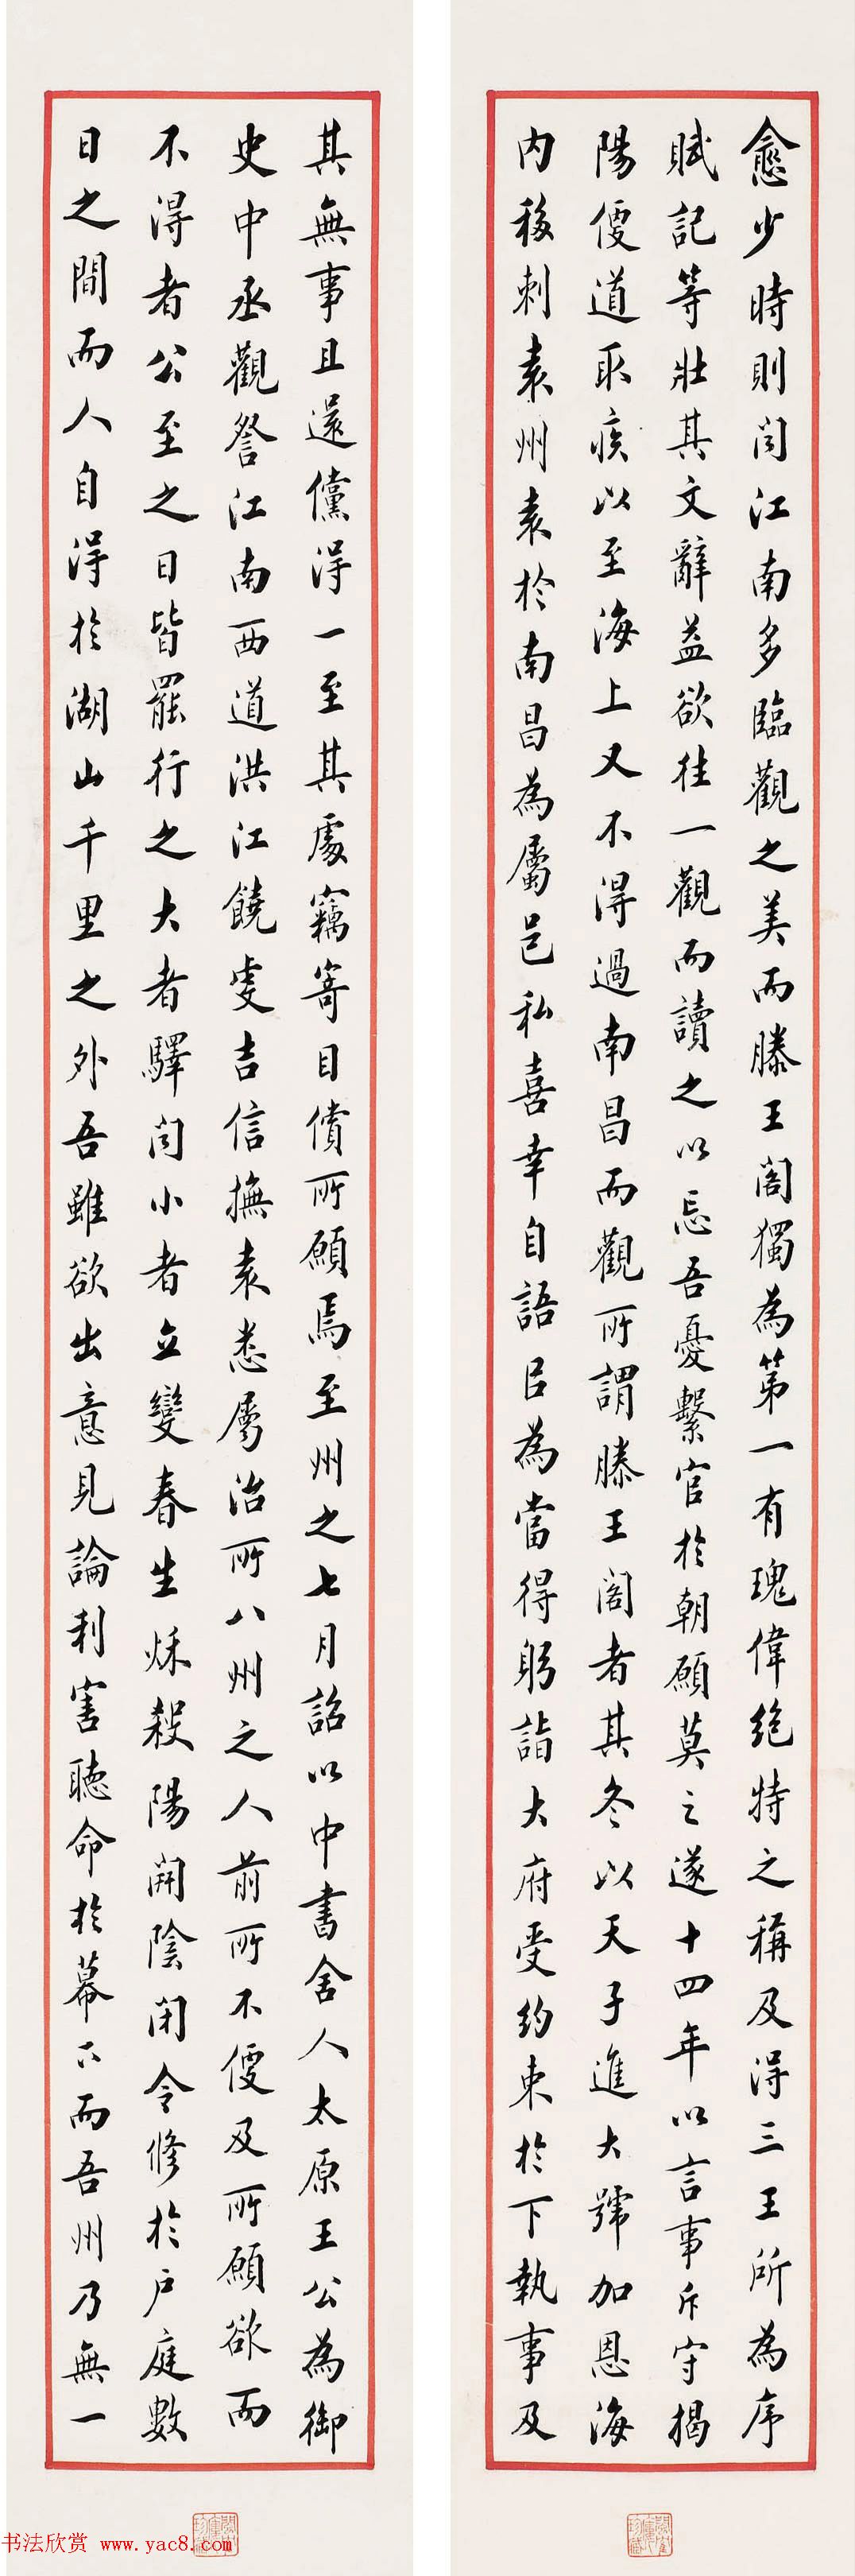 愈少時則聞江南多臨觀之美而滕王閣獨為第一有瑰偉絕特之稱及得三王所為序
賦記等壯其文辭益欲往一觀而讀之以忘吾憂繫官於朝願莫之遂十四年以言事斥守揭
陽便道取疾以至海上又不得過南昌而觀所謂滕王閣者其冬以天子進大號加恩海
內移刺袁州袁於南昌為屬邑私喜幸自語以為當得躬詣大府受約束於下執事及
其無事且還儻得一至其處竊寄目償所願焉至州之七月詔以中書舍人太原王公為御
史中丞觀詧江南西道洪江饒虔吉信撫袁悉屬治所八州之人前所不便及所願欲而
不得者公至之日皆罷行之大者驛聞小者立變春生秌殺陽開陰閉令修於戶庭數
日之間而人自得於湖山千里之外吾雖欲出意見論利害聽命於幕下而吾州乃無一
书法欣赏 www.yac8.com